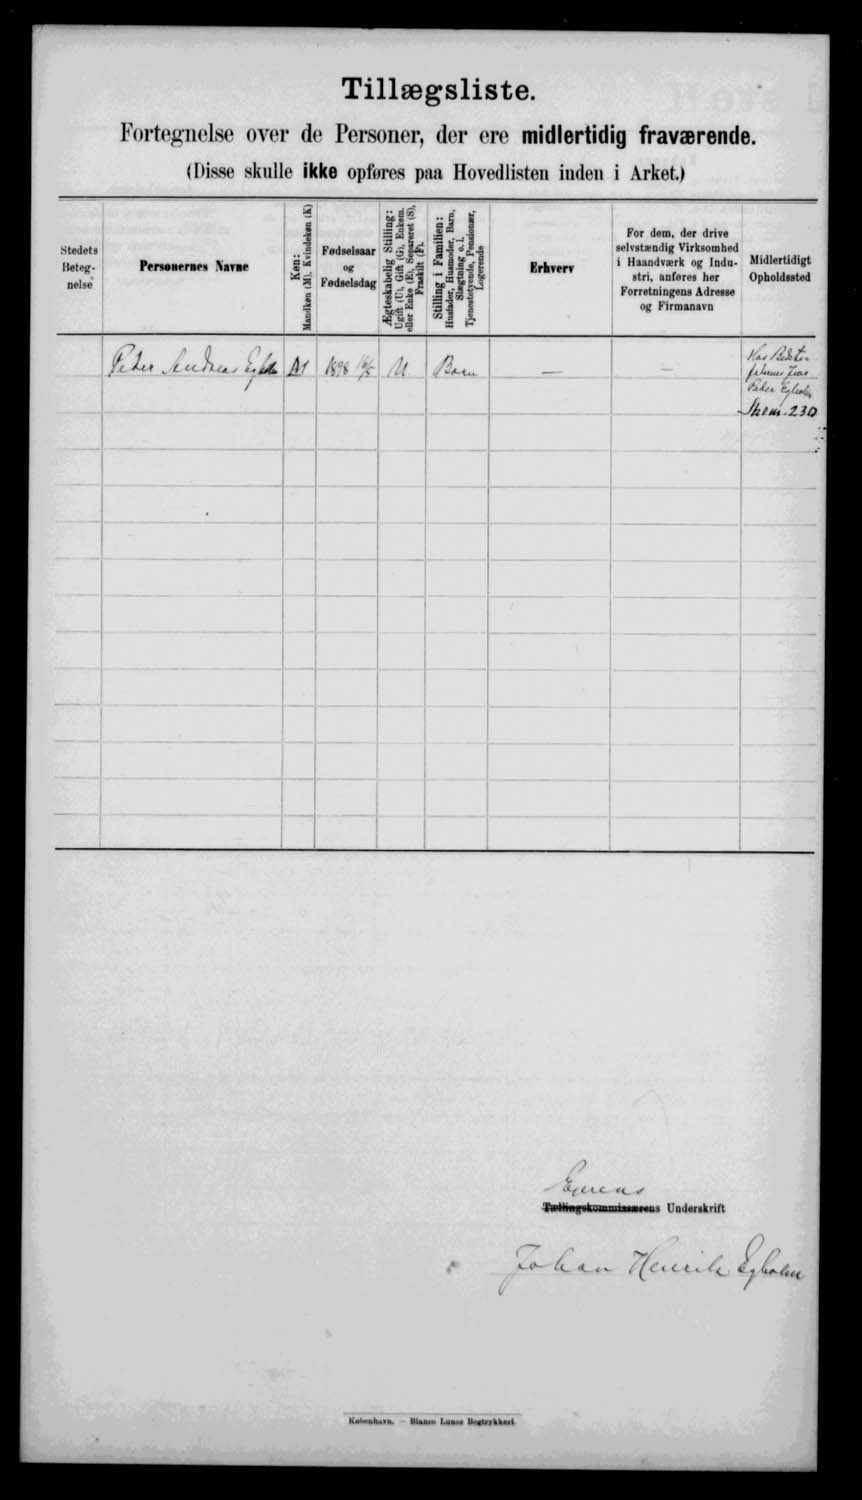 Tillægsliste.
Fortegnelse over de Personer, der ere midlertidig fraværende.
(Disse skulle ikke opføres paa Hovedlisten inden i Arket.)
Stedets
Beteg-
nelse
Personernes Navne
Køn:
Mandkøn (M), Kvindekøn (K)
Fødselsaar
og
Fødselsdag
Ægteskabelig Stilling:
Ugift (U), Gift (G), Enkem.
eller Enke (E), Separeret (S),
Fraskilt (F).
Stilling i Familien:
Husfader, Husmoder, Barn,
Slægtning o. l.
Tjenestetyende, Pensionær,
Logerende
Erhverv
For dem, der drive
selvstændig Virksomhed
i Haandværk og Indu-
stri, anføres her
Forretningens Adresse
og Firmanavn
Midlertidigt
Opholdssted
Peder Andreas M 1898 16/5 U. Barn — —
Hos Bedste-
Peder Egholm
Skem. 230
Ejerens
Tællingskommissærens Underskrift
Johan Henrik Egholm
København. — Bianco Lunos Bogtrykkeri.